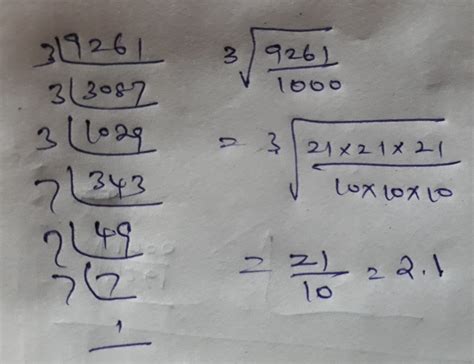 3 | 9261
3 | 3087
3 | 1029
7 | 343
7 | 49
7 | 7
1
∛(9261/1000)
= ∛(21×21×21 / 10×10×10)
= 21/10 = 2.1